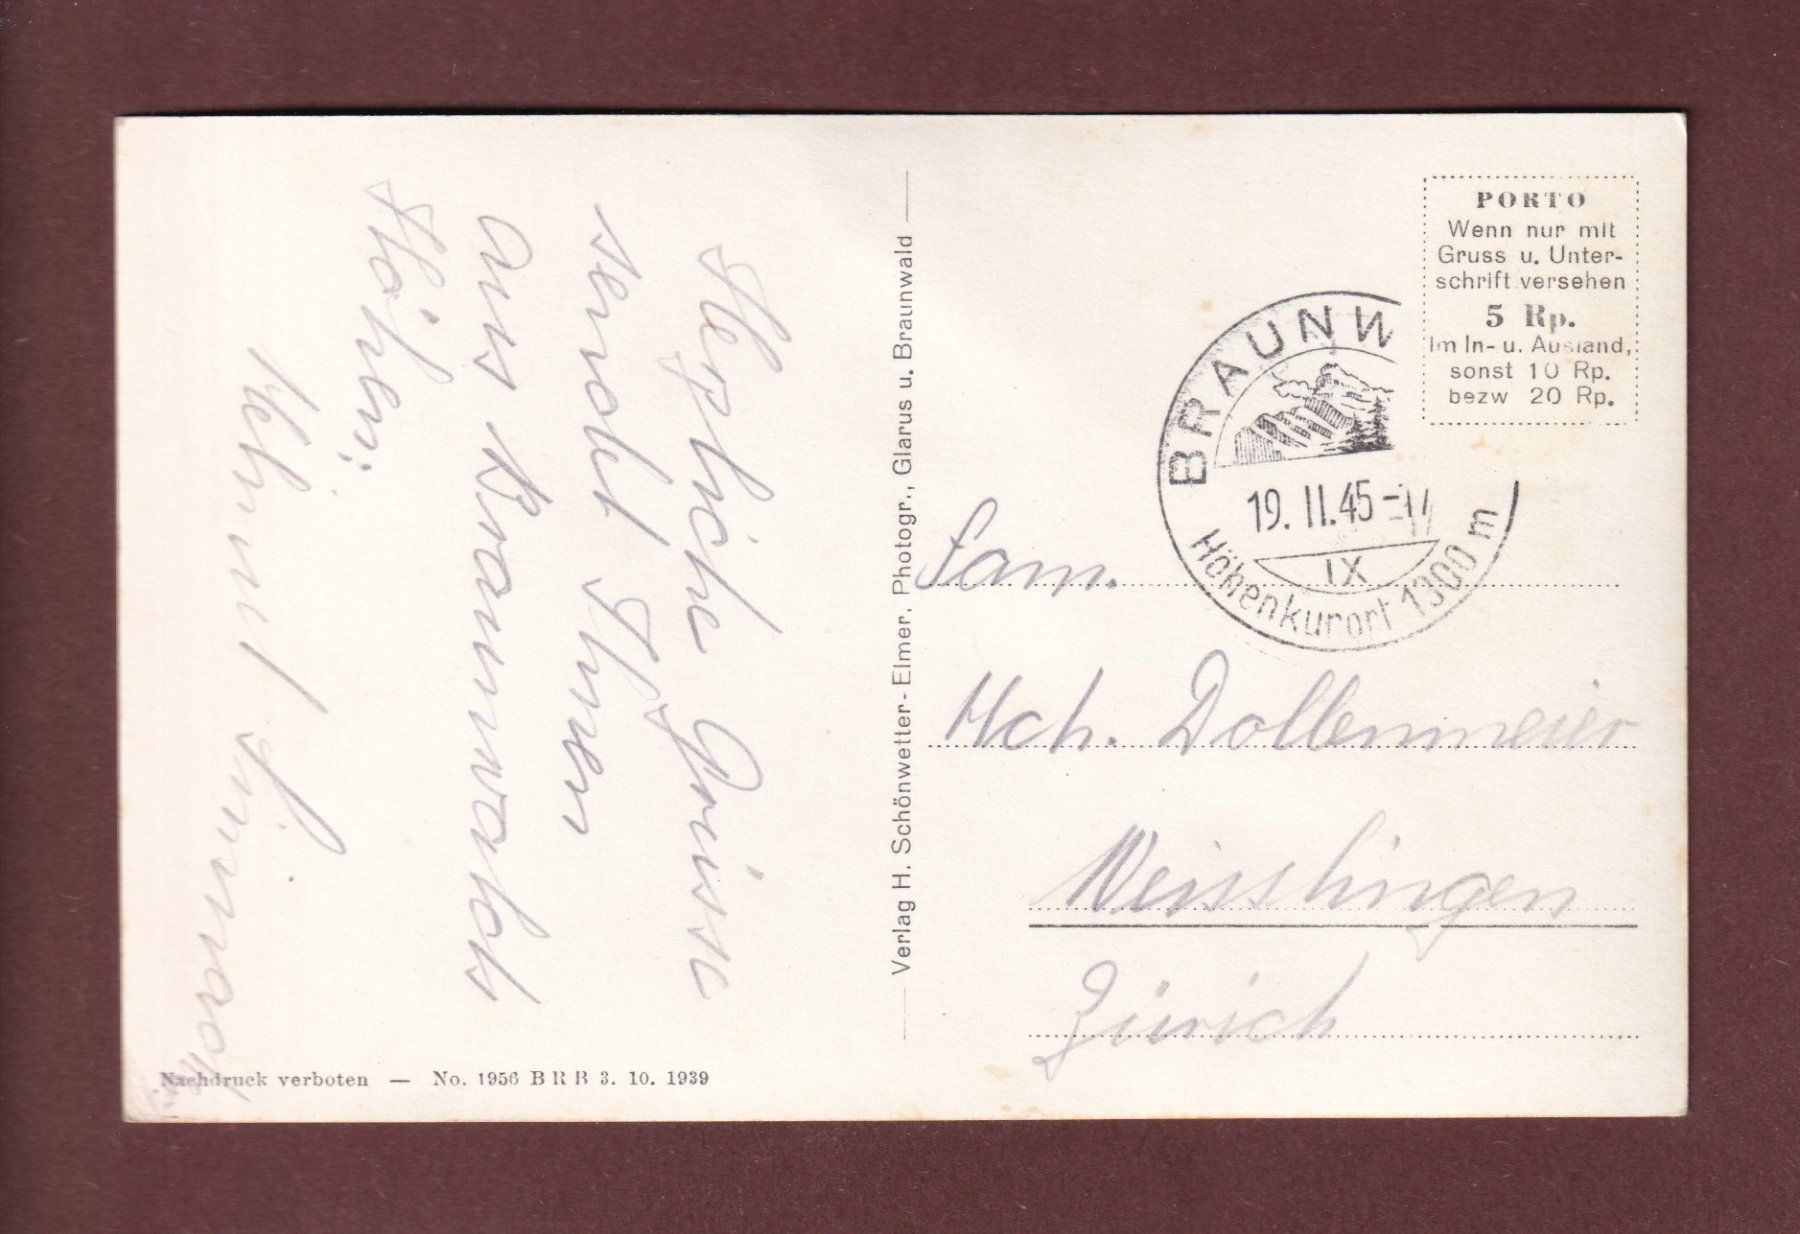 Herzliche Grüsse
sendet Ihnen
aus Braunwalds
Höhen:
Verlag H. Schönwetter-Elmer, Photogr., Glarus u. Braunwald
PORTO
Wenn nur mit
Gruss u. Unter-
schrift versehen
5 Rp.
Im In- u. Ausland,
sonst 10 Rp.
bezw 20 Rp.
BRAUNW
19. II. 45
IX
Höhenkurort 1300 m
Fam.
Hch. Dollenmeier
Weisslingen
Zürich
Nachdruck verboten — No. 1956 BRB 3. 10. 1939